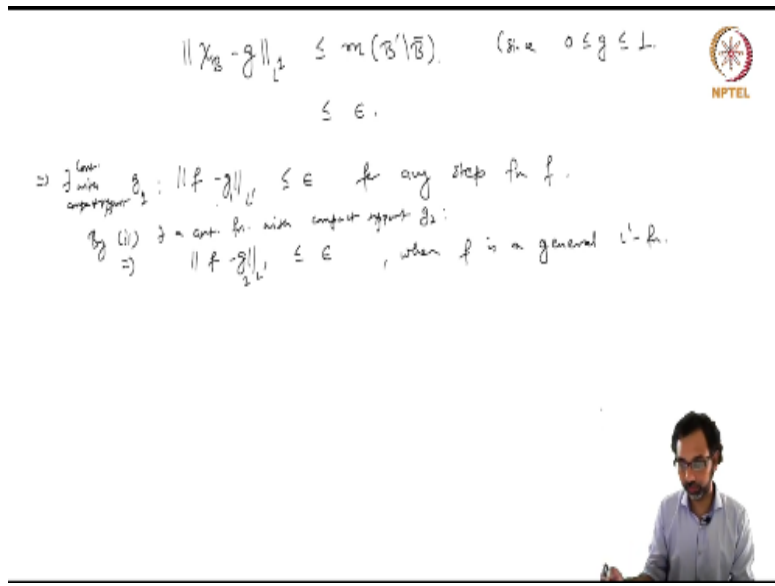 ‖ χ_B - g ‖_{L^1} ≤ m ( B' \ B̄ ). (since 0 ≤ g ≤ 1.
NPTEL
≤ ε.
⇒ ∃ cont. with compact support g_1 : ‖ f - g_1 ‖_{L^1} ≤ ε for any step fn f.
By (ii) ∃ a cont. fn. with compact support g_2 :
⇒ ‖ f - g_2 ‖_{L^1} ≤ ε , when f is a general L^1-fn.